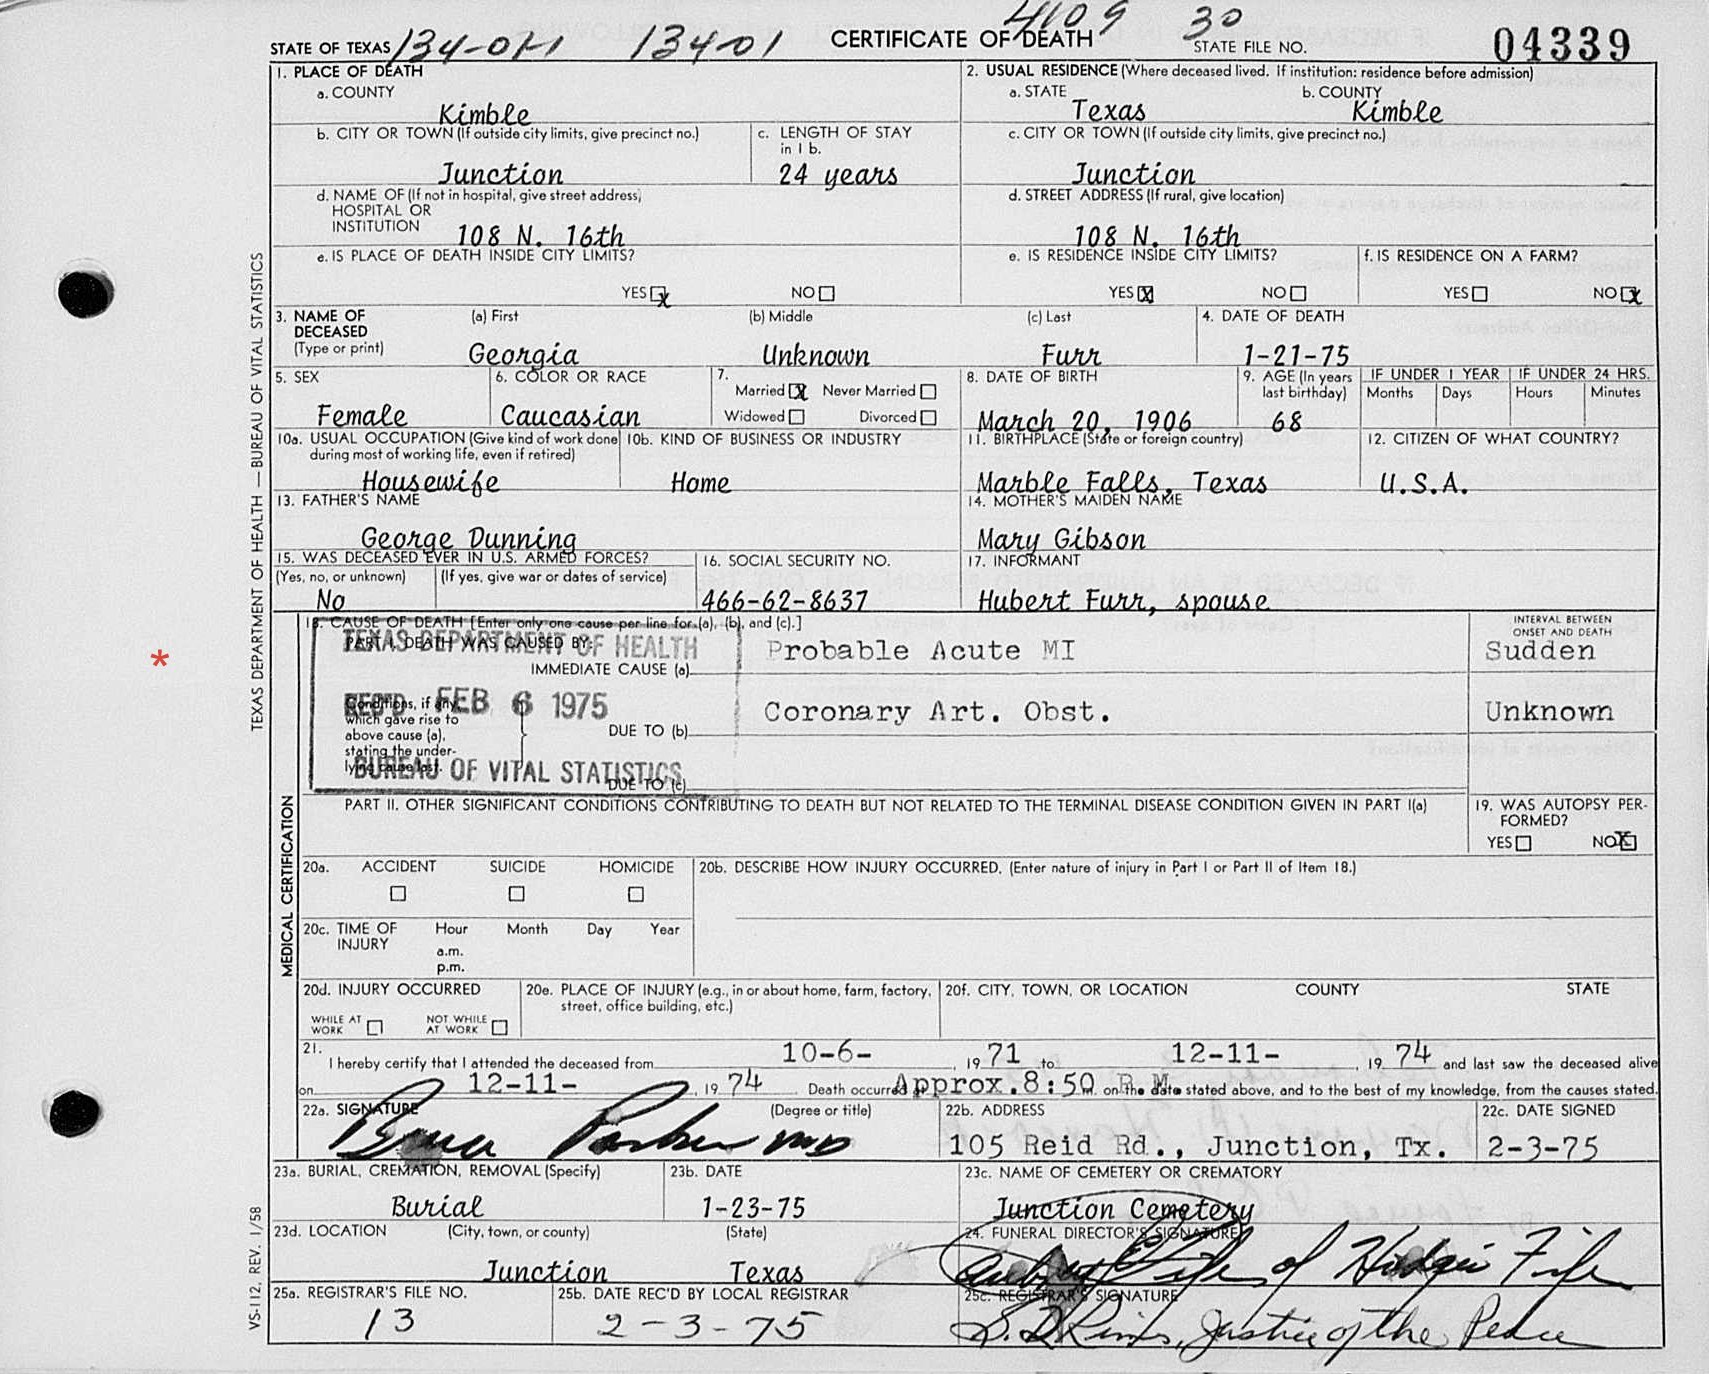 4109 30
STATE OF TEXAS 134-01 134-01 CERTIFICATE OF DEATH STATE FILE NO. 04339
1. PLACE OF DEATH
a. COUNTY
Kimble
2. USUAL RESIDENCE (Where deceased lived. If institution: residence before admission)
a. STATE b. COUNTY
Texas Kimble
b. CITY OR TOWN (If outside city limits, give precinct no.)
Junction
c. LENGTH OF STAY
in 1 b.
24 years
c. CITY OR TOWN (If outside city limits, give precinct no.)
Junction
d. NAME OF (If not in hospital, give street address)
HOSPITAL OR
INSTITUTION
108 N. 16th
d. STREET ADDRESS (If rural, give location)
108 N. 16th
e. IS PLACE OF DEATH INSIDE CITY LIMITS?
YES x NO
e. IS RESIDENCE INSIDE CITY LIMITS?
YES X NO
f. IS RESIDENCE ON A FARM?
YES NO x
3. NAME OF
DECEASED
(Type or print)
(a) First (b) Middle (c) Last
Georgia Unknown Furr
4. DATE OF DEATH
1-21-75
5. SEX
Female
6. COLOR OR RACE
Caucasian
7.
Married X Never Married
Widowed Divorced
8. DATE OF BIRTH
March 20, 1906
9. AGE (In years
last birthday)
68
IF UNDER 1 YEAR IF UNDER 24 HRS.
Months Days Hours Minutes
10a. USUAL OCCUPATION (Give kind of work done
during most of working life, even if retired)
Housewife
10b. KIND OF BUSINESS OR INDUSTRY
Home
11. BIRTHPLACE (State or foreign country)
Marble Falls, Texas
12. CITIZEN OF WHAT COUNTRY?
U.S.A.
13. FATHER'S NAME
George Dunning
14. MOTHER'S MAIDEN NAME
Mary Gibson
15. WAS DECEASED EVER IN U.S. ARMED FORCES?
(Yes, no, or unknown) (If yes, give war or dates of service)
No
16. SOCIAL SECURITY NO.
466-62-8637
17. INFORMANT
Hubert Furr, spouse
18. CAUSE OF DEATH [Enter only one cause per line for (a), (b), and (c).]
PART I. DEATH WAS CAUSED BY:
TEXAS DEPARTMENT OF HEALTH
IMMEDIATE CAUSE (a) Probable Acute MI
INTERVAL BETWEEN
ONSET AND DEATH
Sudden
REC'D FEB 6 1975
Conditions, if any,
which gave rise to
above cause (a),
stating the under-
lying cause last.
DUE TO (b) Coronary Art. Obst. Unknown
BUREAU OF VITAL STATISTICS
DUE TO (c)
PART II. OTHER SIGNIFICANT CONDITIONS CONTRIBUTING TO DEATH BUT NOT RELATED TO THE TERMINAL DISEASE CONDITION GIVEN IN PART I(a)
19. WAS AUTOPSY PER-
FORMED?
YES NO X
20a. ACCIDENT SUICIDE HOMICIDE
20b. DESCRIBE HOW INJURY OCCURRED. (Enter nature of injury in Part I or Part II of Item 18.)
20c. TIME OF
INJURY
Hour Month Day Year
a.m.
p.m.
20d. INJURY OCCURRED
WHILE AT
WORK
NOT WHILE
AT WORK
20e. PLACE OF INJURY (e.g., in or about home, farm, factory,
street, office building, etc.)
20f. CITY, TOWN, OR LOCATION COUNTY STATE
21.
I hereby certify that I attended the deceased from 10-6- , 19 71 to 12-11- , 19 74 and last saw the deceased alive
on 12-11- , 19 74 Death occurred Approx. 8:50 P.M. m. on the date stated above, and to the best of my knowledge, from the causes stated.
22a. SIGNATURE (Degree or title)
Parker MD
22b. ADDRESS
105 Reid Rd., Junction, Tx.
22c. DATE SIGNED
2-3-75
23a. BURIAL, CREMATION, REMOVAL (Specify)
Burial
23b. DATE
1-23-75
23c. NAME OF CEMETERY OR CREMATORY
Junction Cemetery
23d. LOCATION (City, town, or county) (State)
Junction Texas
24. FUNERAL DIRECTOR'S SIGNATURE
25a. REGISTRAR'S FILE NO.
13
25b. DATE REC'D BY LOCAL REGISTRAR
2-3-75
25c. REGISTRAR'S SIGNATURE
Justice of the Peace
TEXAS DEPARTMENT OF HEALTH — BUREAU OF VITAL STATISTICS
MEDICAL CERTIFICATION
VS-112, REV. 1/58
*